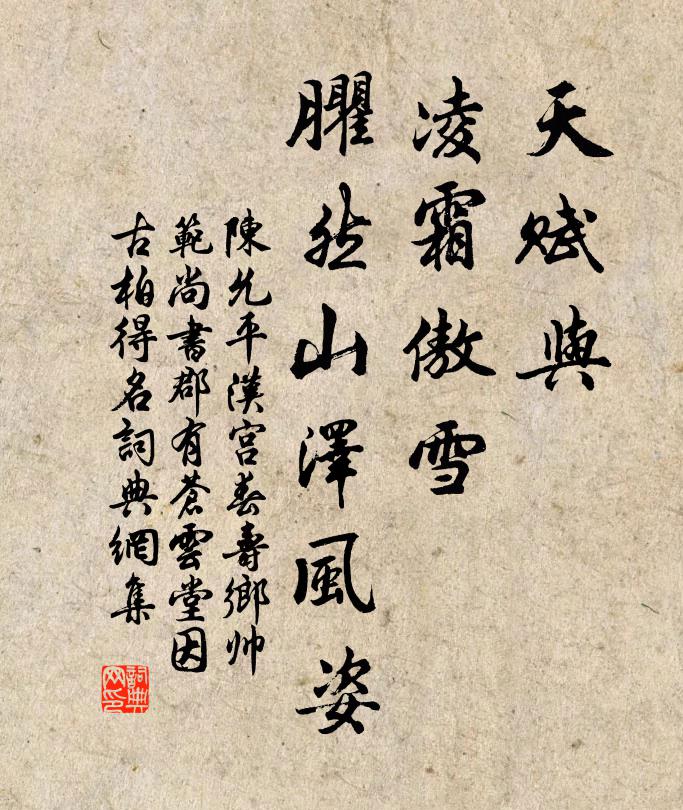 天賦與
凌霜傲雪
臞然山澤風姿
陳允平漢宮春壽鄉帅
範尚書郡有蒼雲堂因
古柏得名詞典網集
詞典
网印